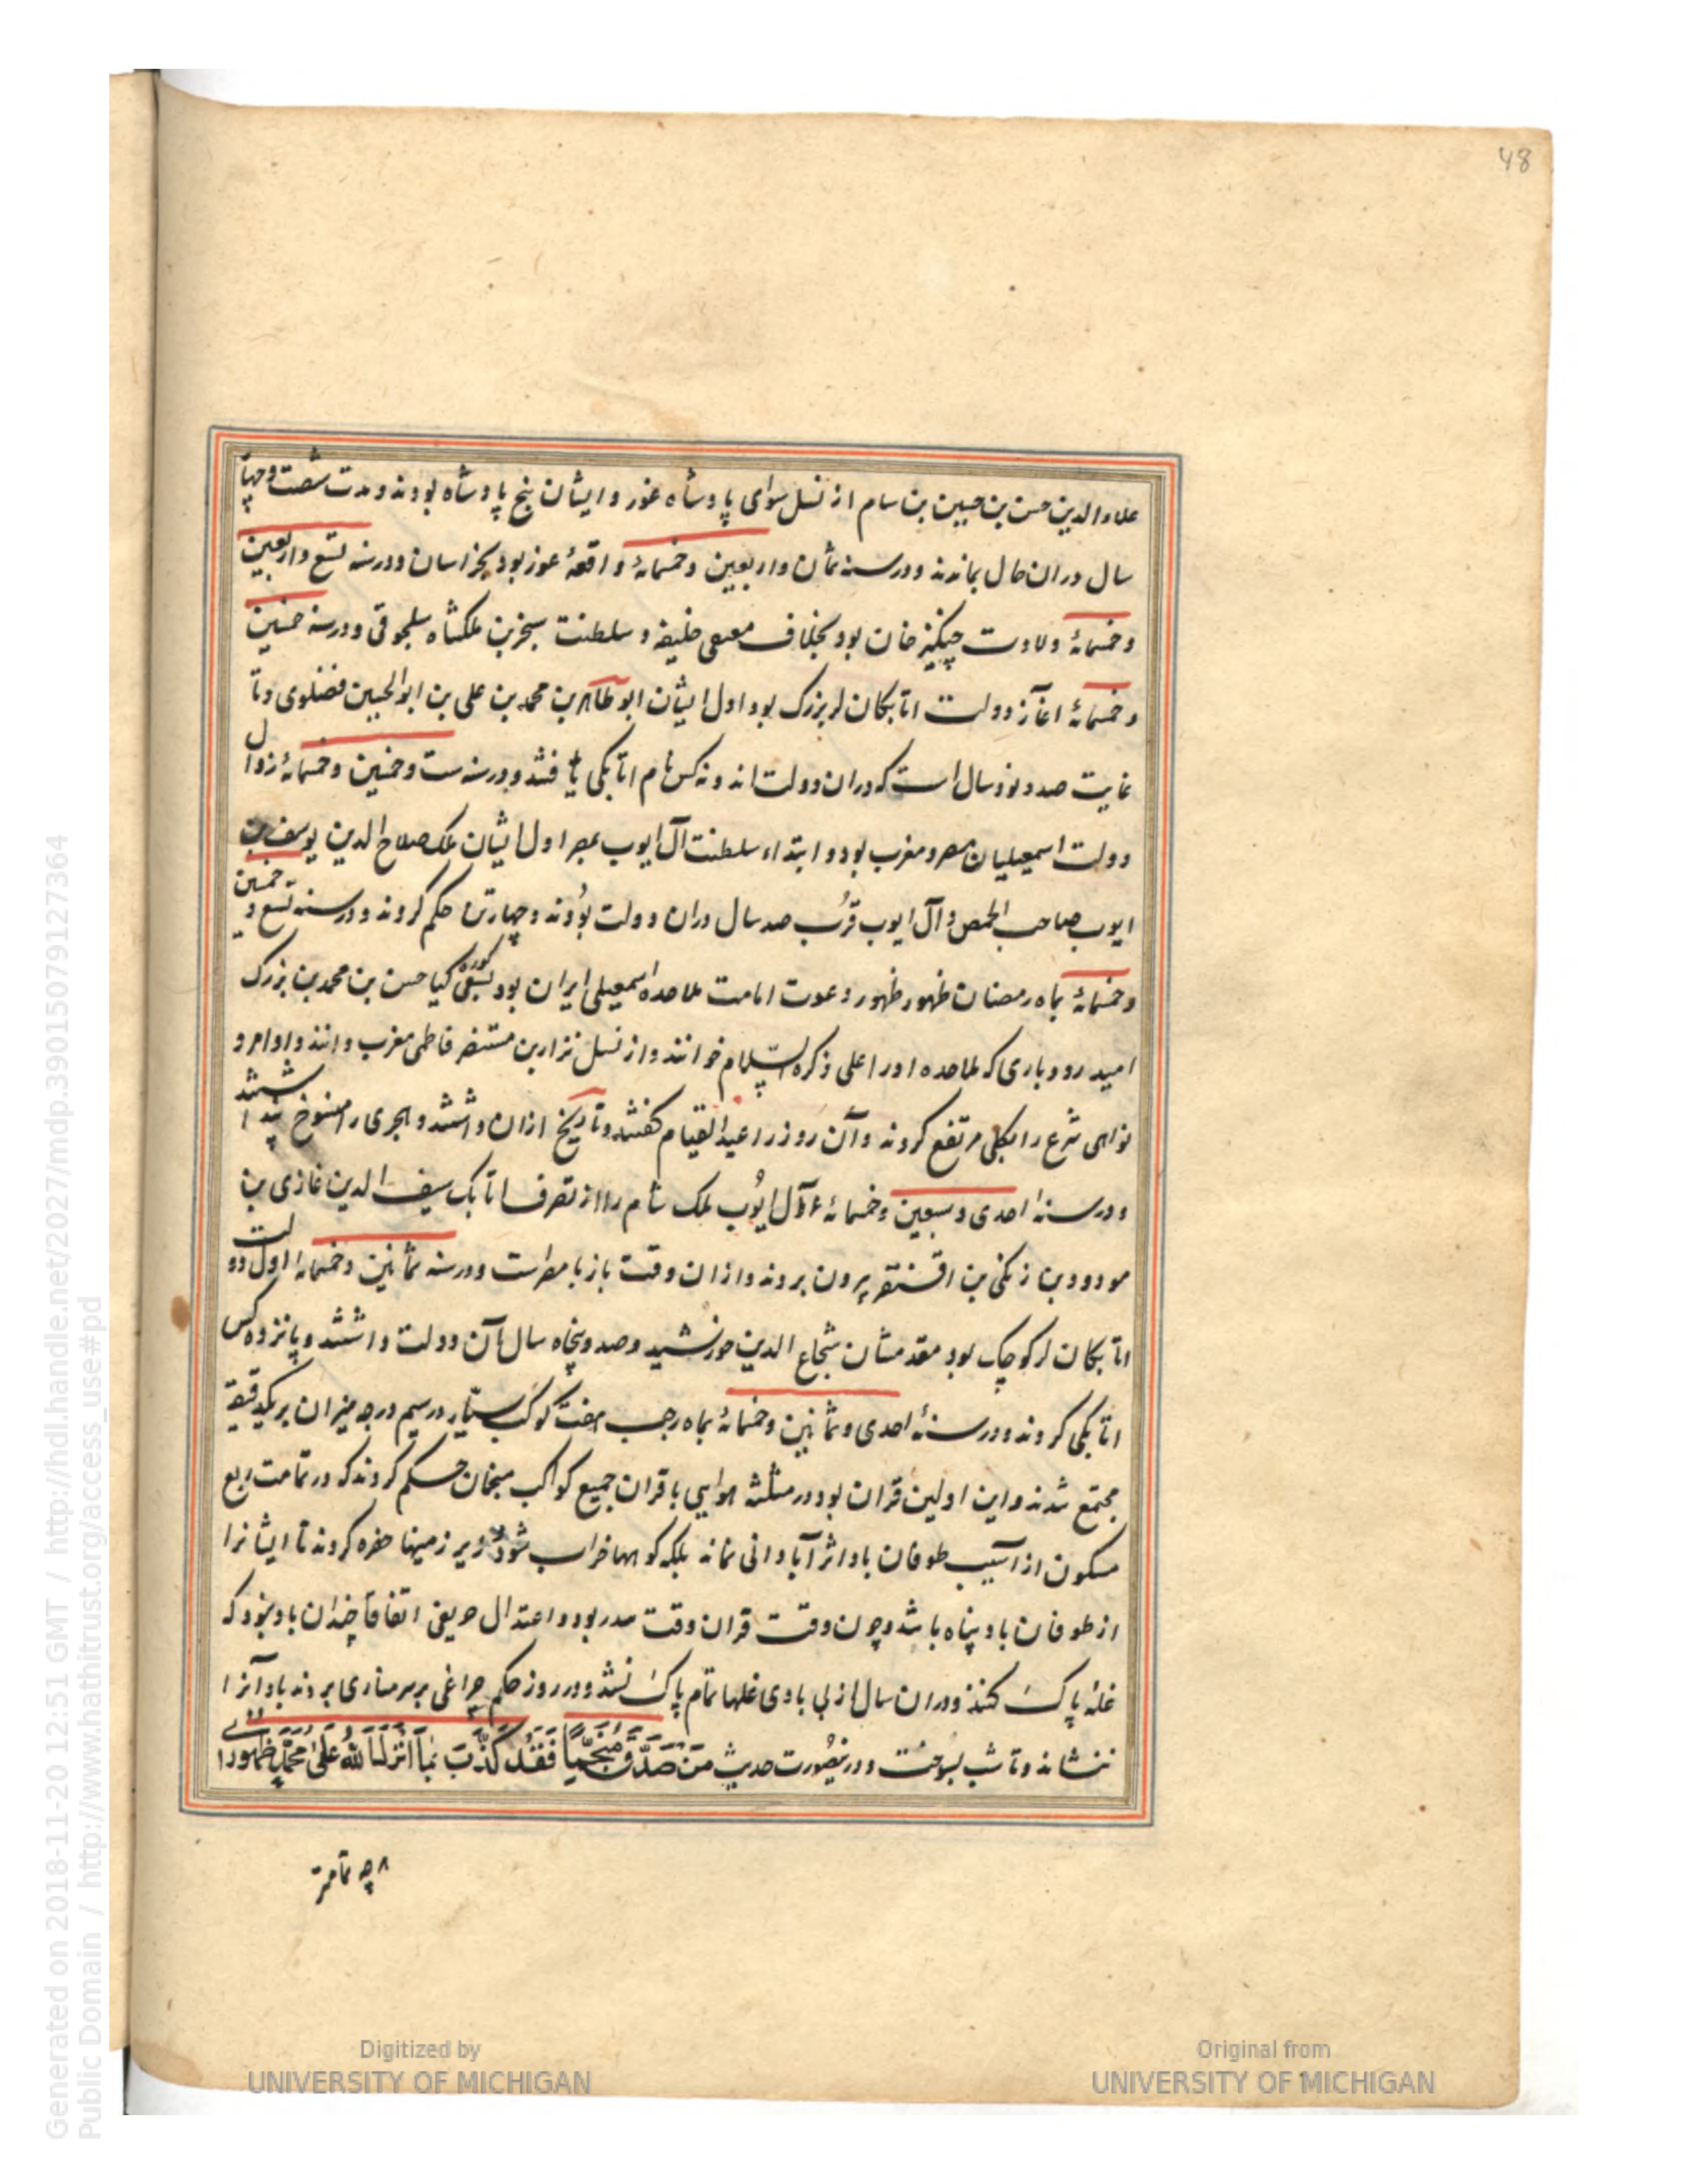 48
علاء الدین حسن بن حسین بن سام از نسل سوای پادشاه غور و ایشان پنج پادشاه بودند و مدت شصت و چهار
سال دران حال بماندند و در سنه ثمان و اربعین و خمسمائة واقعهٔ غوز بود بخراسان و در سنه تسع و اربعین
و خمسمائة ولادت چنگیز خان بود بخلاف مقتفی خلیفه و سلطنت سنجر بن ملکشاه سلجوقی و در سنه خمسین
و خمسمائة آغاز دولت اتابکان لر بزرک بود اول ایشان ابو طاهر بن محمد بن علی بن ابو الحسین فضلوی و تا
غایت صد و نود سال است که دران دولت اند و نه کس نام اتابکی یافتند و در سنه ست و خمسین و خمسمائة زوال
دولت اسمعیلیان مصر و مغرب بود و ابتداء سلطنت آل ایوب بمصر اول ایشان ملک صلاح الدین یوسف بن
ایوب صاحب الحمص و آل ایوب قرب صد سال دران دولت بودند و چهار تن حکم کردند و در سنه تسع و خمسین
و خمسمائة بماه رمضان ظهور ظهور دعوت امامت ملاحده اسمعیلی ایران بود کیا حسن بن محمد بن بزرک
امید رودباری که ملاحده او را علی ذکره السلام خوانند و از نسل نزار بن مستنصر فاطمی مغرب دانند و اوامر و
نواهی شرع را بکلی مرتفع کردند و آن روز را عید القیام گفتند و تاریخ ازان داشتند و هجری را منسوخ
و در سنه احدی و سبعین و خمسمائة آل ایوب ملک شام را از تصرف اتابک سیف الدین غازی بن
مودود بن زنکی بن اقسنقر بیرون بردند و ازان وقت باز با مصر است و در سنه ثمانین و خمسمائة اول دولت
اتابکان لر کوچک بود مقدمشان شجاع الدین خورشید و صد و پنجاه سال آن دولت داشتند و پانزده کس
اتابکی کردند و در سنهٔ احدی و ثمانین و خمسمائة بماه رجب هفت کوکب سیار در سیم درجه میزان بر یکدقیقه
مجتمع شدند و این اولین قران بود در مثلثه هوایی با قران جمیع کواکب منجمان حکم کردند که در تمامت ربع
مسکون از آسیب طوفان باد اثر آبادانی نماند بلکه کوهها خراب شود و زیر زمینها حفره کردند تا ایشانرا
از طوفان باد پناه باشد و چون وقت قران وقت بود و اعتدال اتفاقا چندان باد نبود که
غله پاک کنند و دران سال از بی بادی غلها تمام پاک نشد و در روز حکم چراغی بر سر مناری بردند باد آنرا
ننشاند و تا شب بسوخت و درینصورت حدیث مَن صَدَّقَ مُنَجِّمًا فَقَد كَذَّبَ بِمَا أَنزَلَ اللهُ عَلَى مُحَمَّدٍ ظهور